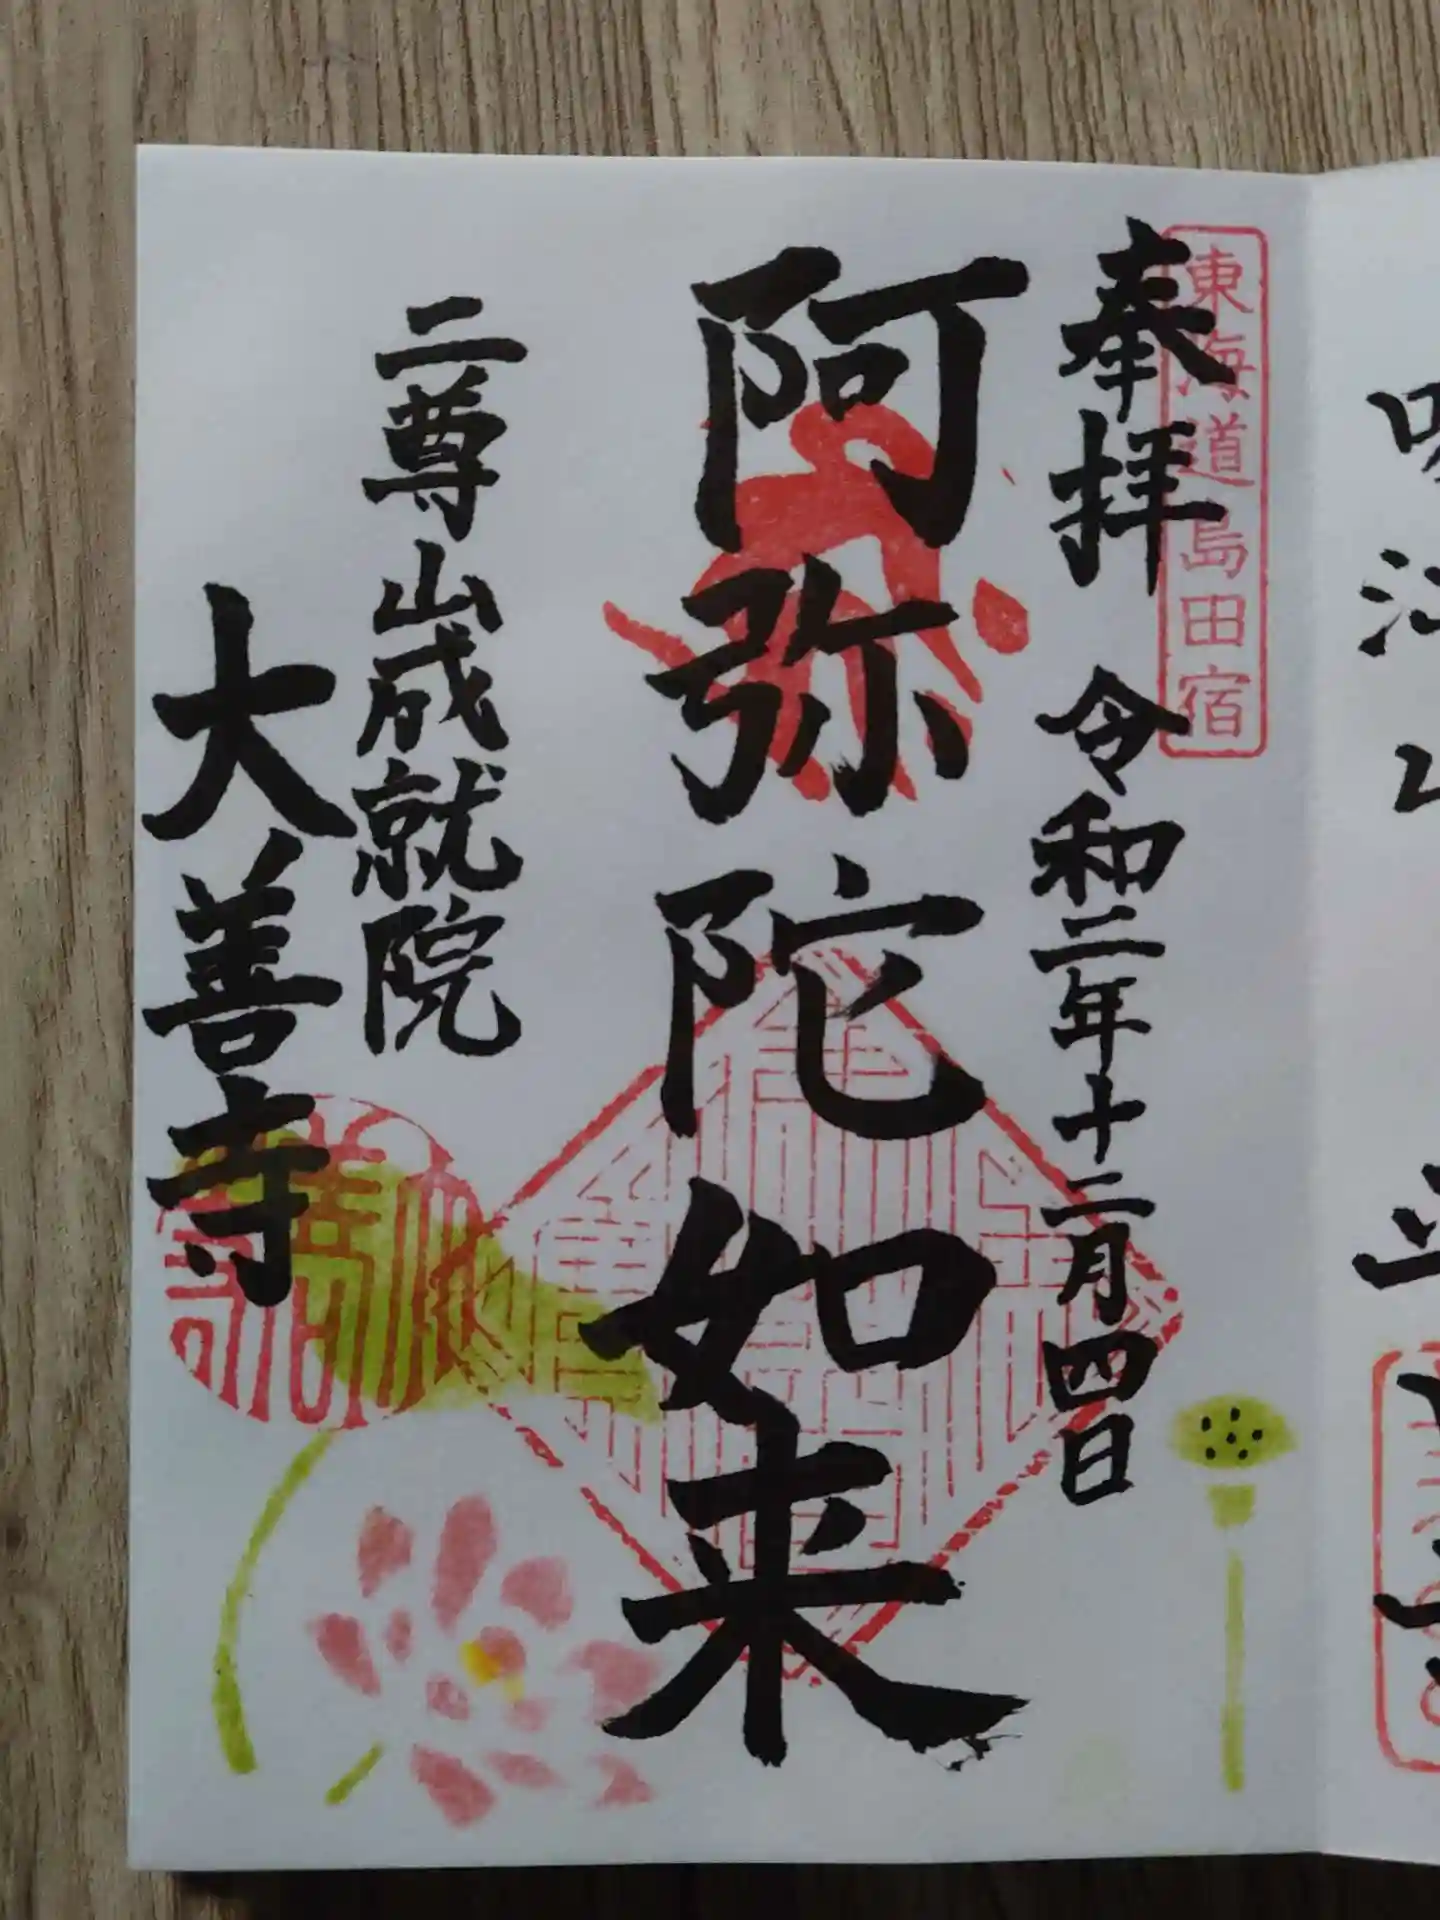 東海道島田宿
奉拝 令和二年十二月四日
阿弥陀如来
二尊山成就院
大善寺